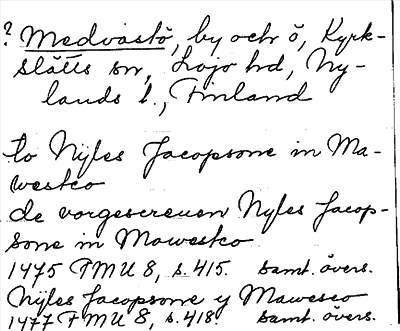 ? Medvastö, by och ö, Kyrk-
slätts sn, Lojo hd, Ny-
lands l., Finland
to Nÿles Jacopsone in Ma-
westco
de vorgescreuen Nyles Jacop-
sone in Mowestco
1475 FMU 8, s. 415. Samt. övers.
Nÿles Jacopsone y Mawesco
1477 FMU 8, s. 418. Samt. övers.